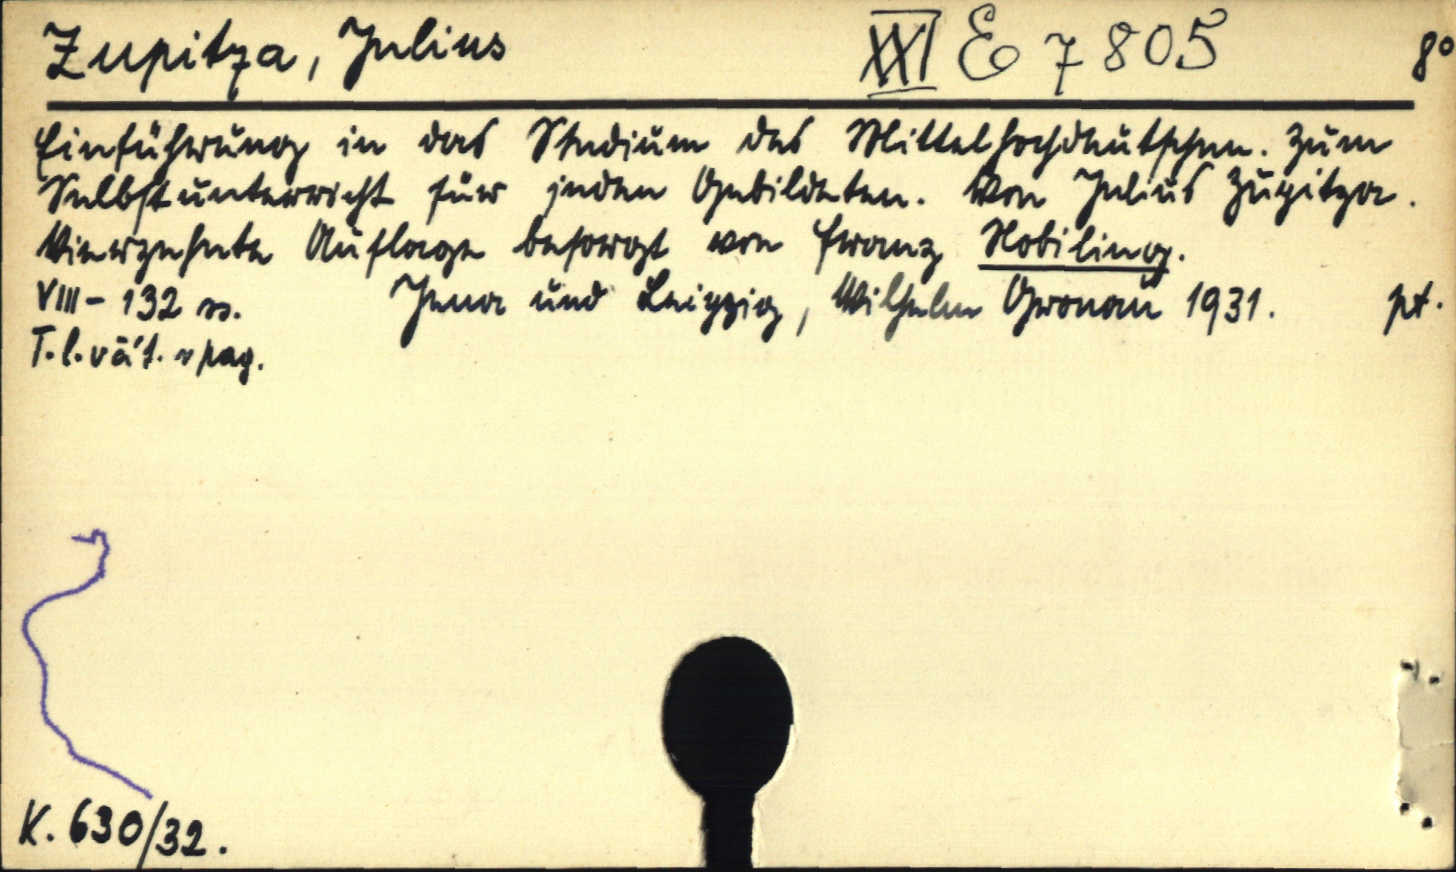 Zupitza, Julius XXI E 7805 8°
Einführung in das Studium des Mittelhochdeutschen. Zum
Selbstunterricht für jeden Gebildeten. Von Julius Zupitza.
Vierzehnte Auflage besorgt von Franz Nobiling.
VIII - 132 ss. Jena und Leipzig, Wilhelm Gronau 1931. pt.
T. l. vät. v pag.
K. 630/32.